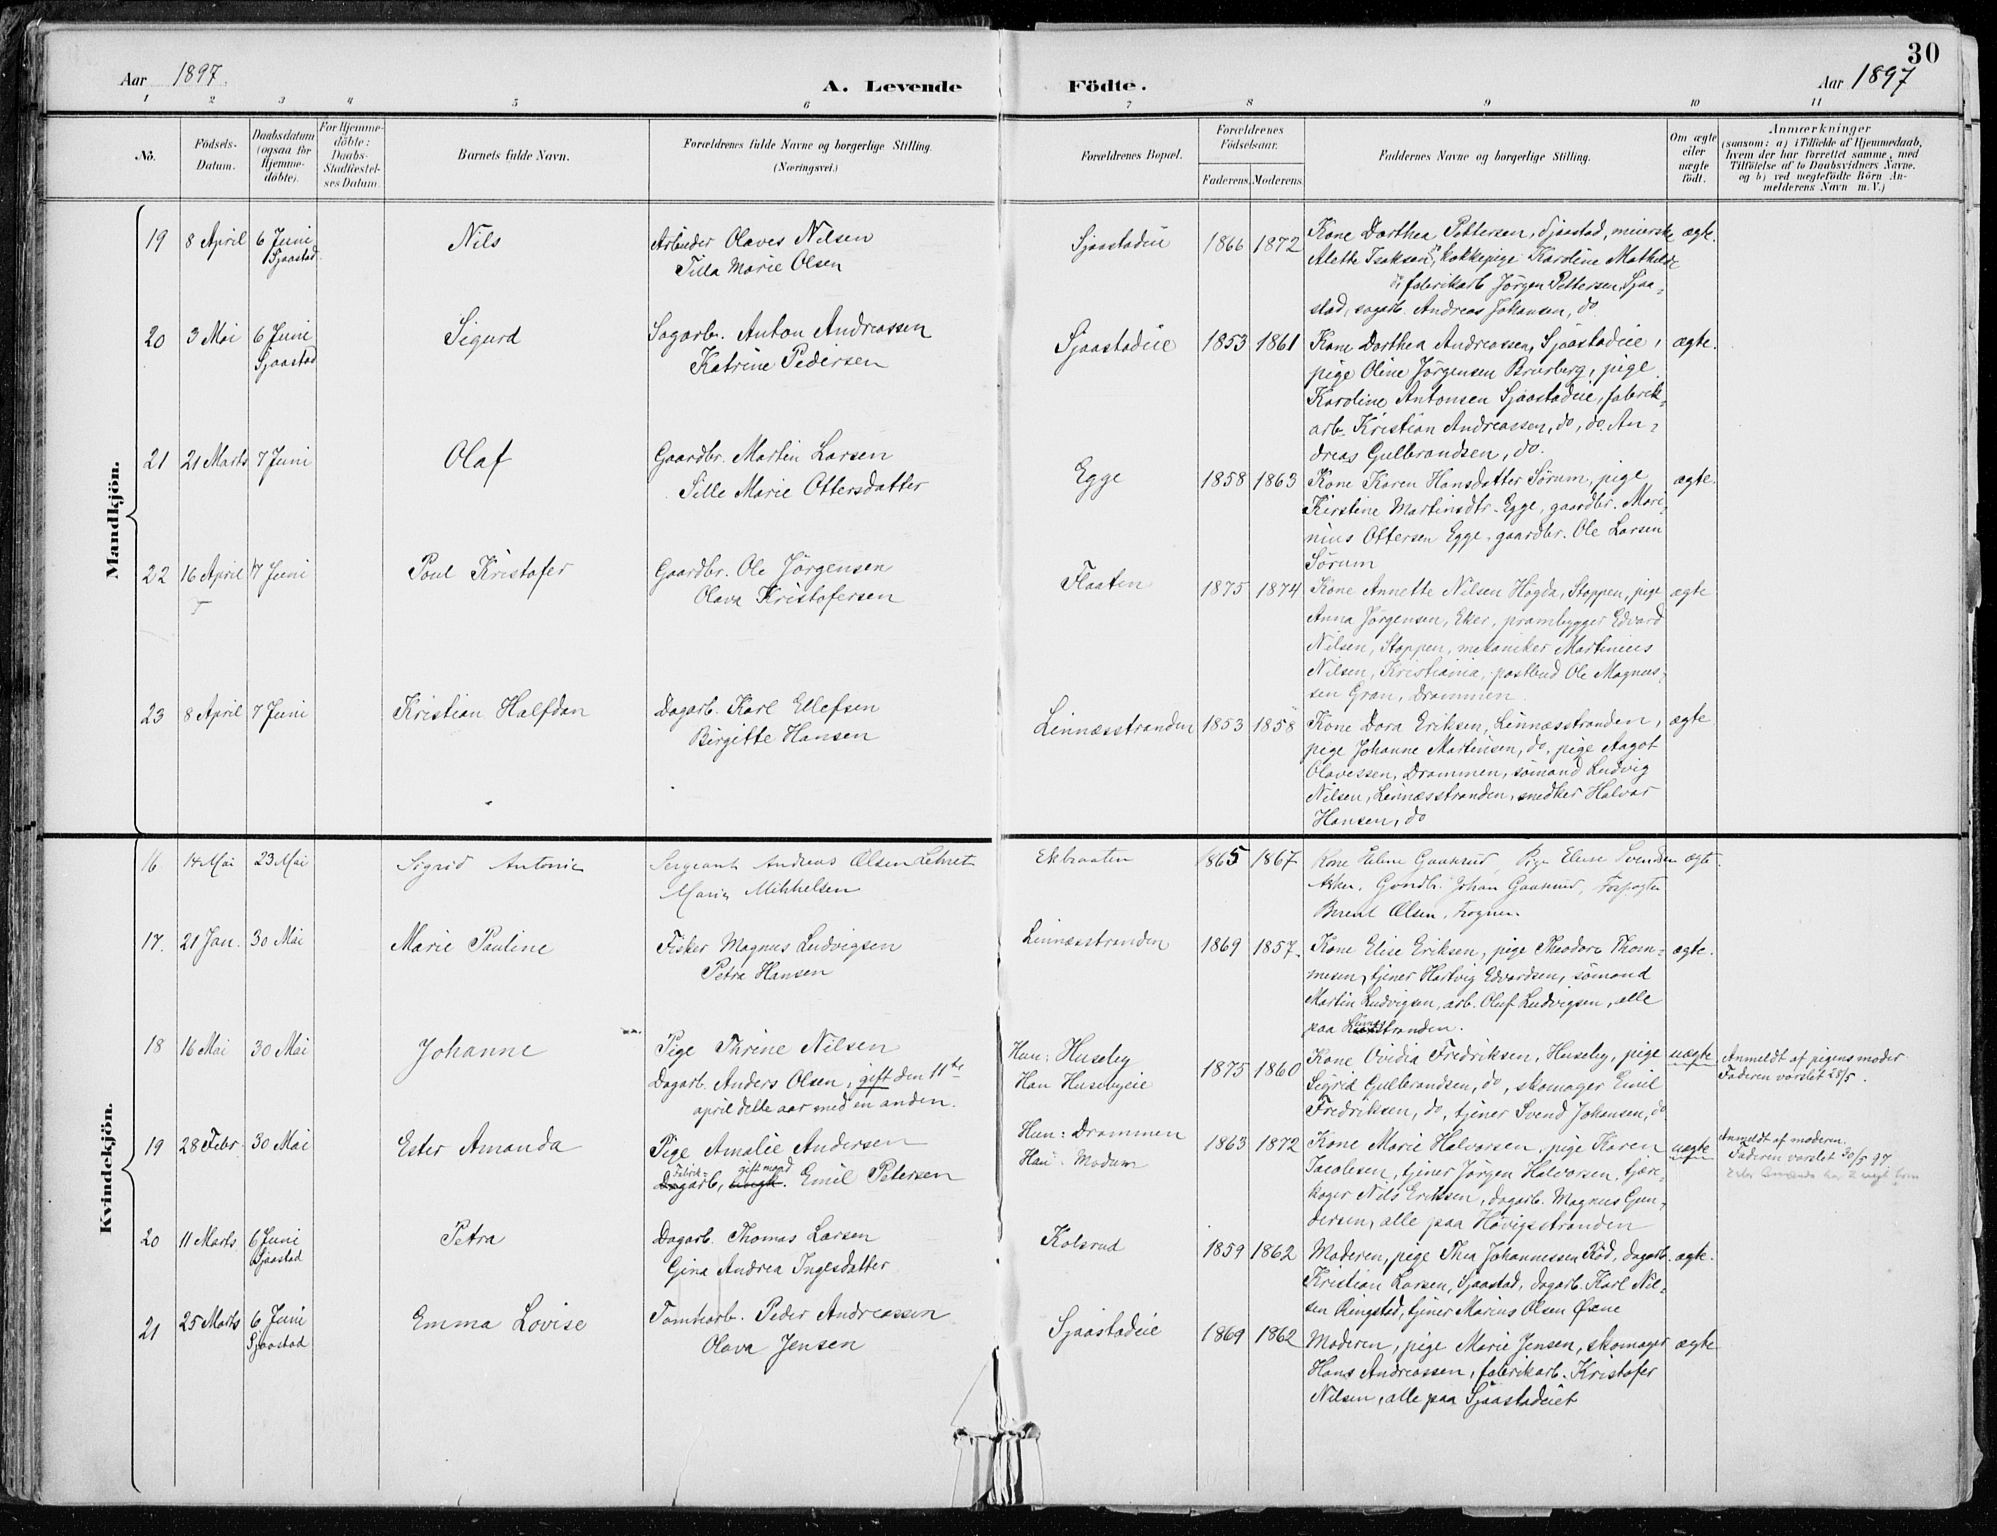 30
Aar 1897.
A. Levende Födte.
Aar 1897
1 2 3 4 5 6 7 8 9 10 11
No.
Födsels-
Datum.
Daabsdatum
(ogsaa for
Hjemme-
döbte).
For Hjemme-
döbte:
Daabs-
Stadfæstel-
ses Datum
Barnets fulde Navn.
Forældrenes fulde Navne og borgerlige Stilling.
(Næringsvei.)
Forældrenes Bopæl.
Forældrenes
Födselsaar.
Faderens. Moderens.
Faddernes Navne og borgerlige Stilling.
Om ægte
eller
uægte
födt.
Anmærkninger
(saasom: a) i Tilfælde af Hjemmedaab,
hvem der har forrettet samme, med
Tilföielse af to Daabsvidners Navne.
og b) ved uægtefödte Börn An-
melderens Navn m. V.)
Mandkjön.
19 8 April 6 Juni Nils Arbeider Olaves Nilsen Sjaastadeie 1866 1872 Kone Dorthea Pettersen, Sjaastad, meierske ægte.
Sjaastad. Tilla Marie Olsen Alette Isaksen, kokkepige Karoline Mathilde
fabrikarb Jörgen Pettersen, Sjaa-
stad, sagarb. Andreas Johansen, do
20 3 Mai 6 Juni Sigurd Sagarb. Anton Andreassen Sjaastadeie 1853 1861 Kone Dorthea Andreassen, Sjaastadeie, ægte.
Sjaastad Katrine Pedersen pige Oline Jörgensen Bruberg, pige
Karoline Antonsen Sjaastadeie, fabrik-
arb. Kristian Andreassen, do, do. An-
dreas Gulbrandsen, do.
21 21 Marts 7 Juni Olaf Gaardbr. Martin Larsen Egge 1858 1863 Kone Karen Hansdatter Sørum, pige ægte.
Sille Marie Ottersdatter Kirstine Martinsdtr. Egge, gaardbr. Mari-
nius Ottersen Egge, gaardbr. Ole Larsen
Sørum
22 16 April 7 Juni Poul Kristofer Gaardbr. Ole Jörgensen Flaaten 1875 1874 Kone Annette Nilsen Høgda, Stoppen, pige ægte
Olava Kristofersen Anna Jörgensen, Eker, prambygger Edvard
Nilsen, Stoppen, mekaniker Martinius
Nilsen, Kristiania, postbud Ole Magnus-
sen Gran, Drammen.
23 8 April 7 Juni Kristian Halfdan Dagarb. Karl Ellefsen Linnæsstranden 1853 1858 Kone Dora Eriksen, Linnæsstranden, ægte
Birgitte Hansen pige Johanne Martinsen, do, pige Aagot
Olavessen, Drammen, sømand Ludvig
Nilsen, Linnæsstranden, snedker Halvor
Hansen, do
Kvindekjön.
16 14 Mai 23 Mai Sigrid Antonie Sergeant Andreas Olsen Lehret Ekbraaten 1865 1867 Kone Eline Gaasrud, Pige Elise Svendsen ægte.
Marie Mikkelsen Asker, Gaardbr. Johan Gaasrud, Forpagter
Bernt Olsen, Frogner.
17. 21 Jan. 30 Mai Marie Pauline Fisker Magnus Ludvigsen Linnæsstranden 1869 1857. Kone Elise Eriksen, pige Theodora Thom- ægte.
Petra Hansen mesen, tjener Hartvig Edvardsen, sømand
Martin Ludvigsen, arb. Oluf Ludvigsen, alle
paa Linnæsstranden.
18 16 Mai 30 Mai Johanne Pige Thrine Nilsen Hun: Huseby 1875 1860 Kone Ovidia Fredriksen, Huseby, pige uægte Anmeldt af pigens moder
Dagarb. Anders Olsen, gift den 11te Han Husebyeie Sigrid Gulbrandsen, do, skomager Emil Faderen varslet 28/5.
april dette aar med en anden. Fredriksen, do, tjener Svend Johansen, do
19 28 Febr. 30 Mai Ester Amanda Pige Amalie Andersen Hun: Drammen 1863 1872 Kone Marie Halvorsen, pige Karen uægte Anmeldt af moderen.
Fabrikarb, gift mand Emil Petersen Han: Modum Jacobsen, tjener Jörgen Halvorsen, tjære- Faderen varslet 30/5 97
koger Nils Eriksen, dagarb. Magnus Gun-
dersen, alle paa Høvigsstranden
20 11 Marts 6 Juni Petra Dagarb. Thomas Larsen Kolsrud 1859 1862 Moderen, pige Thea Johannessen Röd, dagarb. ægte.
Sjaastad Gina Andrea Ingesdatter Kristian Larsen, Sjaastad, dagarb. Karl Nil-
sen Ringstad, tjener Marius Olsen Øvne
21 25 Marts 6 Juni Emma Lovise Tomtearb. Peder Andreassen Sjaastadeie 1869 1862 Moderen, pige Marie Jensen, skomager ægte
Sjaastad Olava Jensen Hans Andreassen, fabrikarb. Kristofer
Nilsen, alle paa Sjaastadeiet